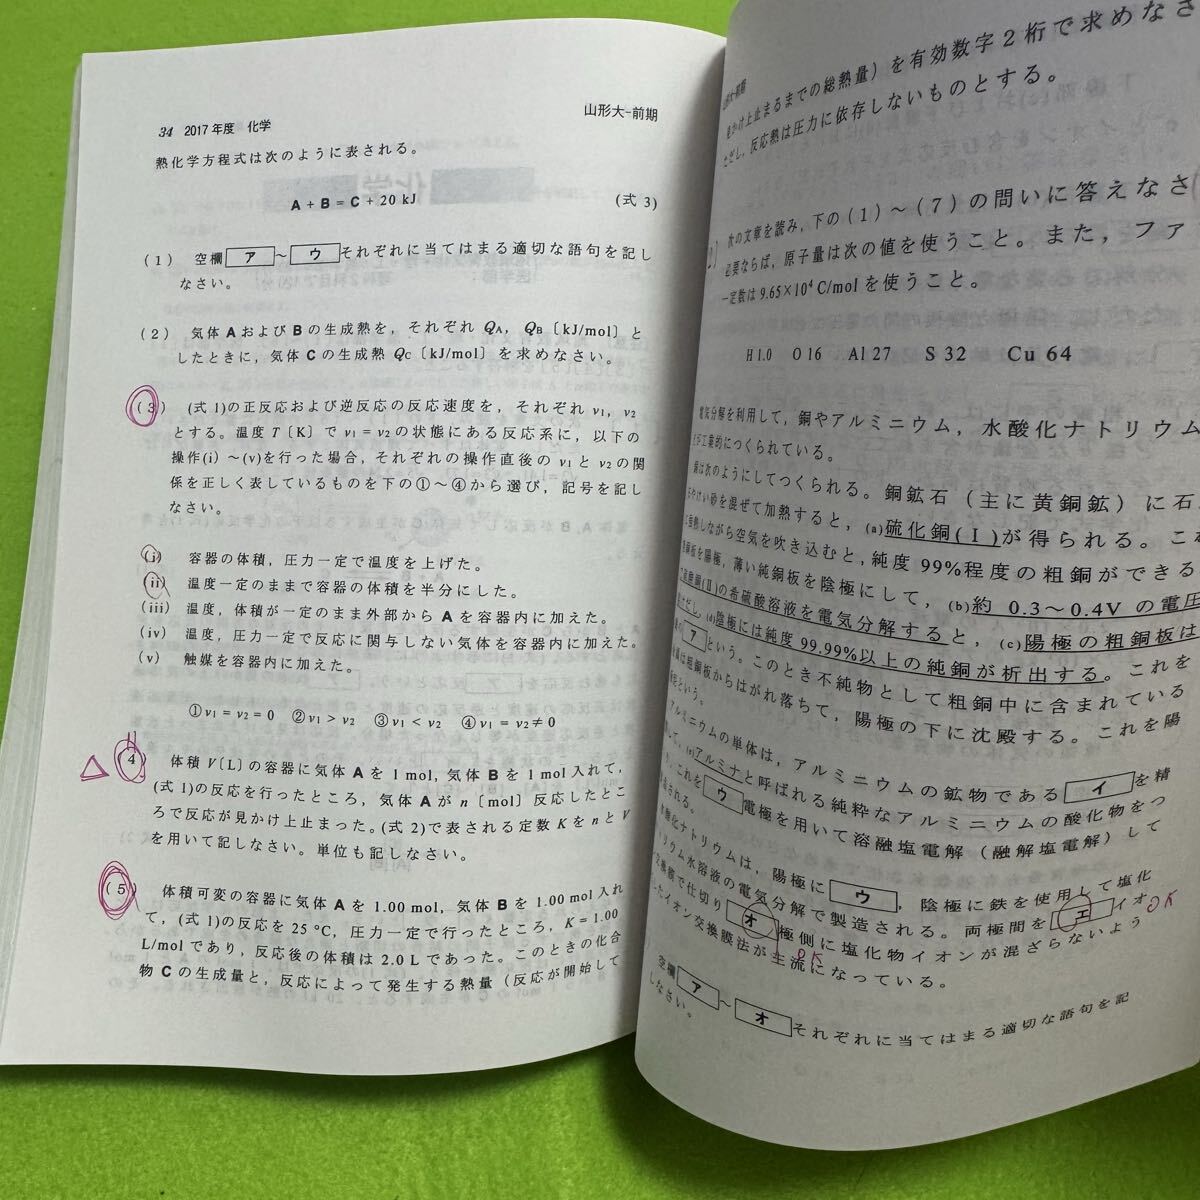 34 2017年度 化学
山形大-前期
熱化学方程式は次のように表される。
A + B = C + 20 kJ (式 3)
(1) 空欄 ア ～ ウ それぞれに当てはまる適切な語句を記し
なさい。
(2) 気体 A および B の生成熱を，それぞれ QA，QB〔kJ/mol〕と
したときに，気体 C の生成熱 QC〔kJ/mol〕を求めなさい。
(3) (式 1)の正反応および逆反応の反応速度を，それぞれ v1，v2
とする。温度 T〔K〕で v1 = v2 の状態にある反応系に，以下の
操作(i) ～(v)を行った場合，それぞれの操作直後の v1 と v2 の関
係を正しく表しているものを下の①～④から選び，記号を記し
なさい。
(i) 容器の体積，圧力一定で温度を上げた。
(ii) 温度一定のままで容器の体積を半分にした。
(iii) 温度，体積が一定のまま外部から A を容器内に加えた。
(iv) 温度，圧力一定で反応に関与しない気体を容器内に加えた。
(v) 触媒を容器内に加えた。
① v1 = v2 = 0 ② v1 > v2 ③ v1 < v2 ④ v1 = v2 ≠ 0
(4) 体積 V〔L〕の容器に気体 A を 1 mol，気体 B を 1 mol 入れて，
(式 1)の反応を行ったところ，気体 A が n〔mol〕反応したとこ
ろで反応が見かけ上止まった。(式 2)で表される定数 K を n と V
を用いて記しなさい。単位も記しなさい。
(5) 体積可変の容器に気体 A を 1.00 mol，気体 B を 1.00 mol 入れ
て，(式 1)の反応を 25 °C，圧力一定で行ったところ，K = 1.00
L/mol であり，反応後の体積は 2.0 L であった。このときの化合
物 C の生成量と，反応によって発生する熱量（反応が開始して
山形大-前期
見かけ上止まるまでの総熱量）を有効数字 2 桁で求めなさ
ただし，反応熱は圧力に依存しないものとする。
次の文章を読み，下の(1)～(7)の問いに答えなさ
必要ならば，原子量は次の値を使うこと。また，ファ
定数は 9.65×10⁴ C/mol を使うこと。
H 1.0 O 16 Al 27 S 32 Cu 64
電気分解を利用して，銅やアルミニウム，水酸化ナトリウム
工業的につくられている。
銅は次のようにしてつくられる。銅鉱石（主に黄銅鉱）に石
けい砂を混ぜて加熱すると，(a)硫化銅(I)が得られる。これ
しながら空気を吹き込むと，純度 99%程度の粗銅ができる
銅板を陽極，薄い純銅板を陰極にして，(b)約 0.3～0.4V の電圧
(II)の希硫酸溶液を電気分解すると，(c)陽極の粗銅板は
(d)陰極には純度 99.99%以上の純銅が析出する。これを
ア という。このとき不純物として粗銅中に含まれている
は粗銅板からはがれ落ちて，陽極の下に沈殿する。これを陽
という。
アルミニウムの単体は，アルミニウムの鉱物である イ を精
して，(e)アルミナと呼ばれる純粋なアルミニウムの酸化物をつ
これを ウ 電極を用いて溶融塩電解（融解塩電解）して
される。
水酸化ナトリウムは，陽極に ウ ，陰極に鉄を使用して塩化
トリウム水溶液の電気分解で製造される。両極間を エ イオ
OK
交換膜で仕切り オ 極側に塩化物イオンが混ざらないよう
OK
イオン交換膜法が主流になっている。
空欄 ア ～ オ それぞれに当てはまる適切な語句を記
しなさい。